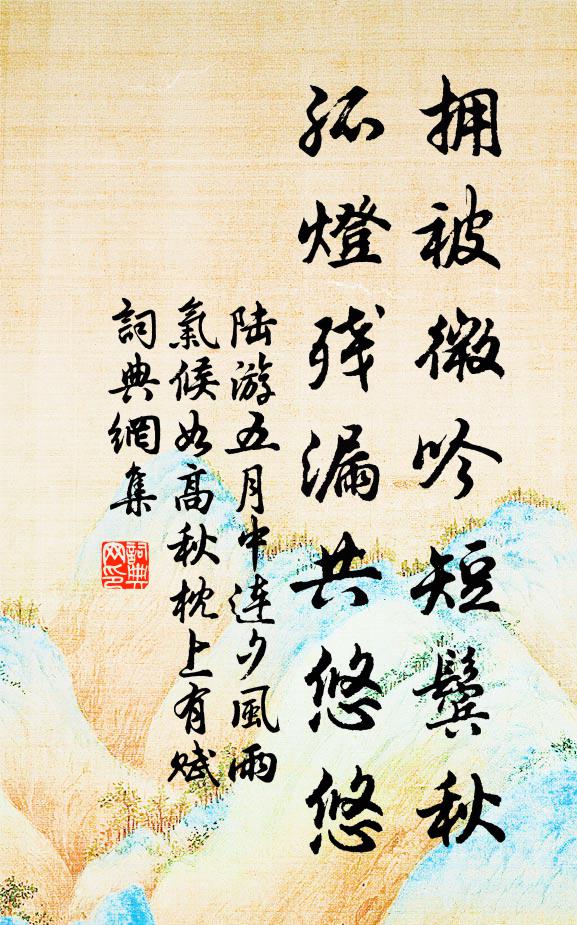 拥被微吟短鬓秋
孤燈残漏共悠悠
陆游五月中连夕風雨
氣候如高秋枕上有赋
詞典網集
詞典网印